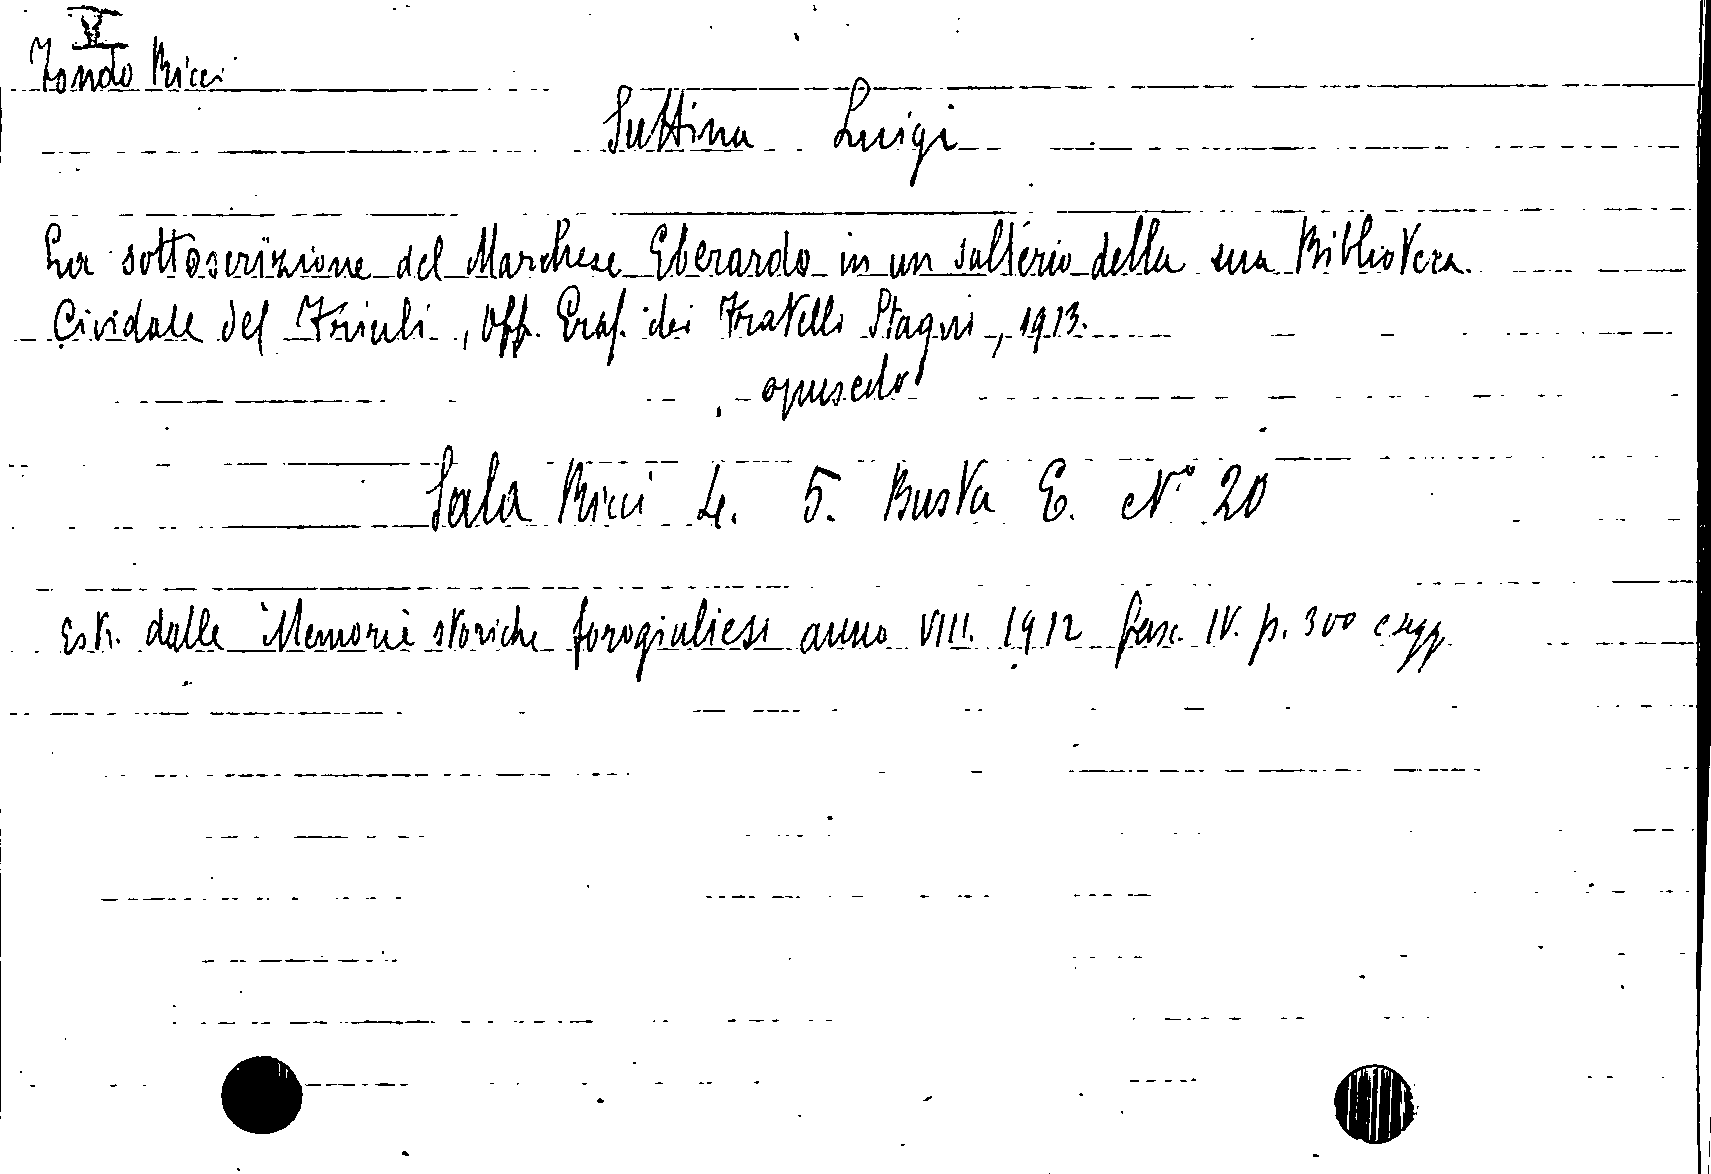 V
Fondo Ricci
Suttina Luigi
La sottoscrizione del Marchese Eberardo in un salterio della sua Biblioteca.
Cividale del Friuli, Off. Graf. dei Fratelli Stagni, 1913.
opuscolo
Sala Ricci 4. 5. Busta E. N° 20
Estr. dalle Memorie storiche forogiuliesi anno VIII. 1912 fasc. IV. p. 300 e sgg.